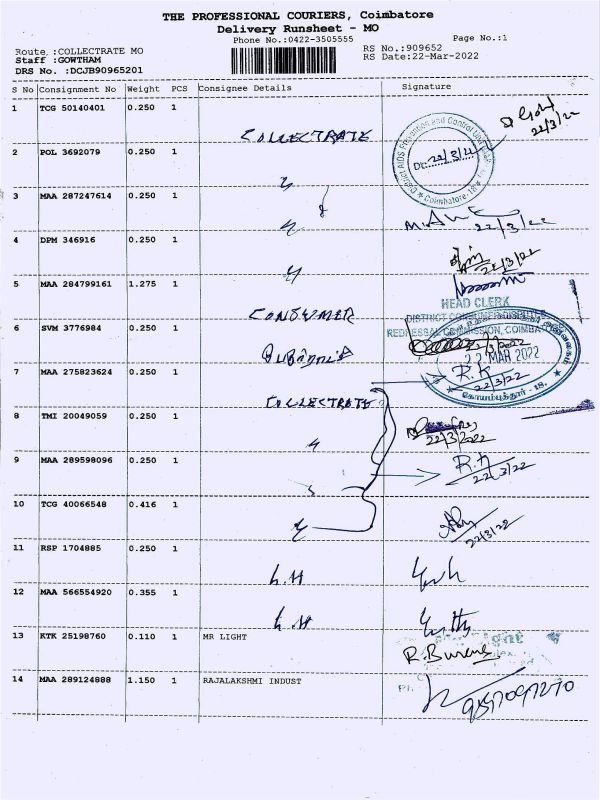 THE PROFESSIONAL COURIERS, Coimbatore
Delivery Runsheet - MO
Phone No.:0422-3505555
Page No.:1
Route :COLLECTRATE MO
RS No.:909652
Staff :GOWTHAM
RS Date:22-Mar-2022
DRS No. :DCJB90965201
S No Consignment No Weight PCS Consignee Details Signature
1 TCG 50140401 0.250 1 COLLECTRATE
22/3/22
2 POL 3692079 0.250 1
District AIDS Prevention and Control Unit
Dt: 22/3/22
Coimbatore-18
3 MAA 287247614 0.250 1
22/3/22
4 DPM 346916 0.250 1
22/3/22
5 MAA 284799161 1.275 1 CONSUMER
HEAD CLERK
DISTRICT CONSUMER DISPUTES
REDRESSAL COMMISSION, COIMBATORE
6 SVM 3776984 0.250 1
22 MAR 2022
7 MAA 275823624 0.250 1 COLLECTRATE R.K
22/3/22
கோயம்புத்தூர் - 18.
8 TMI 20049059 0.250 1
22/3/2022
9 MAA 289598096 0.250 1 R.K
22/3/22
10 TCG 40066548 0.416 1
22/3/22
11 RSP 1704885 0.250 1
12 MAA 566554920 0.355 1
13 KTK 25198760 0.110 1 MR LIGHT
14 MAA 289124888 1.150 1 RAJALAKSHMI INDUST